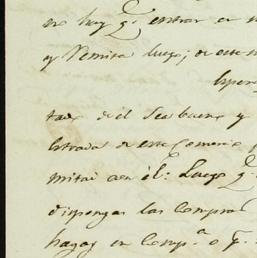 no hay q.e entrar en
y Remita luego; de este
Esper
tado de el Sea bueno y
Entrada de este Comercio
mitai con él: Luego q.e
disponga las Compras
hagas en Comp.a o q.